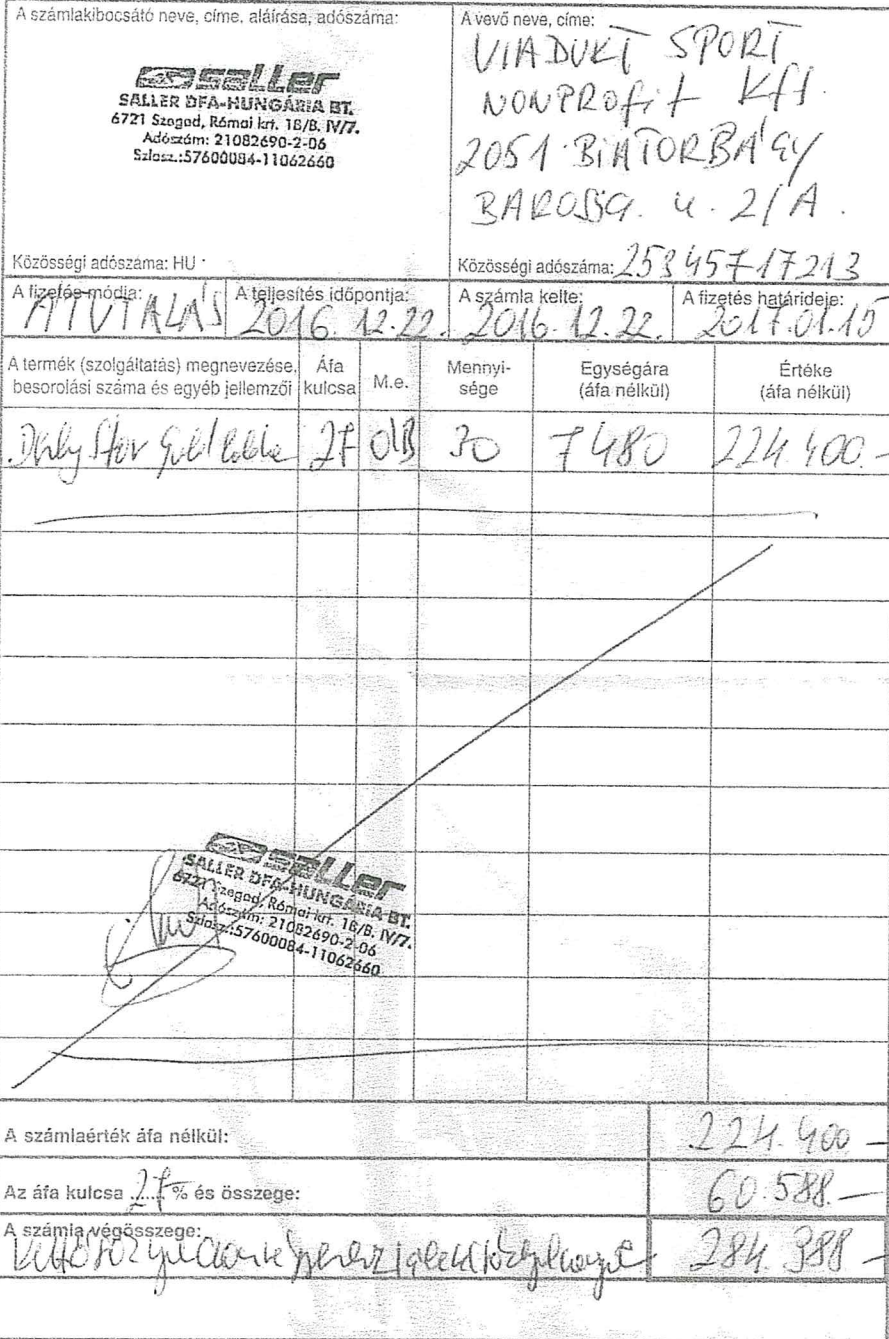 A számlakibocsátó neve, címe, aláírása, adószáma:
saller
SALLER DFA-HUNGÁRIA BT.
6721 Szeged, Római krt. 18/B. IV/7.
Adószám: 21082690-2-06
Szlasz.:57600084-11062660
Közösségi adószáma: HU
A vevő neve, címe:
VIADUKT SPORT
NONPROfit Kft.
2051 BIATORBÁGY
BAROSS G. u. 2/A.
Közösségi adószáma: 25345717213
A fizetés módja: ÁTUTALÁS
A teljesítés időpontja: 2016. 12.22.
A számla kelte: 2016. 12.22.
A fizetés határideje: 2017.01.15
A termék (szolgáltatás) megnevezése, besorolási száma és egyéb jellemzői
Áfa kulcsa
M.e.
Mennyi-
sége
Egységára
(áfa nélkül)
Értéke
(áfa nélkül)
Derby Star Gold labda 27 DB 30 7480 224.400.-
saller
SALLER DFA-HUNGÁRIA BT.
6721 Szeged, Római krt. 18/B. IV/7.
Adószám: 21082690-2-06
Szlasz.:57600084-11062660
A számlaérték áfa nélkül: 224.400 -
Az áfa kulcsa 27 % és összege: 60.588.-
A számla végösszege: 284.988 -